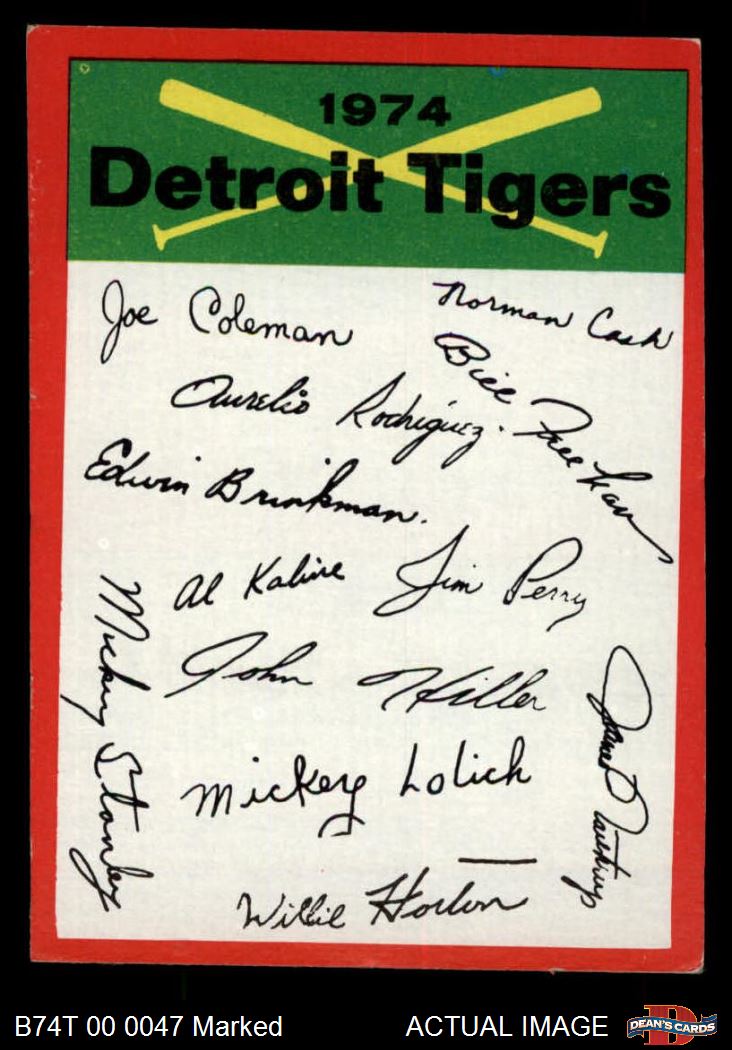 1974
Detroit Tigers
Joe Coleman
Norman Cash
Bill Freehan
Aurelio Rodriguez.
Edwin Brinkman.
Al Kaline
Jim Perry
Mickey Stanley
John Hiller
James Northrup
Mickey Lolich
Willie Horton
B74T 00 0047 Marked
ACTUAL IMAGE
D
DEAN'S CARDS